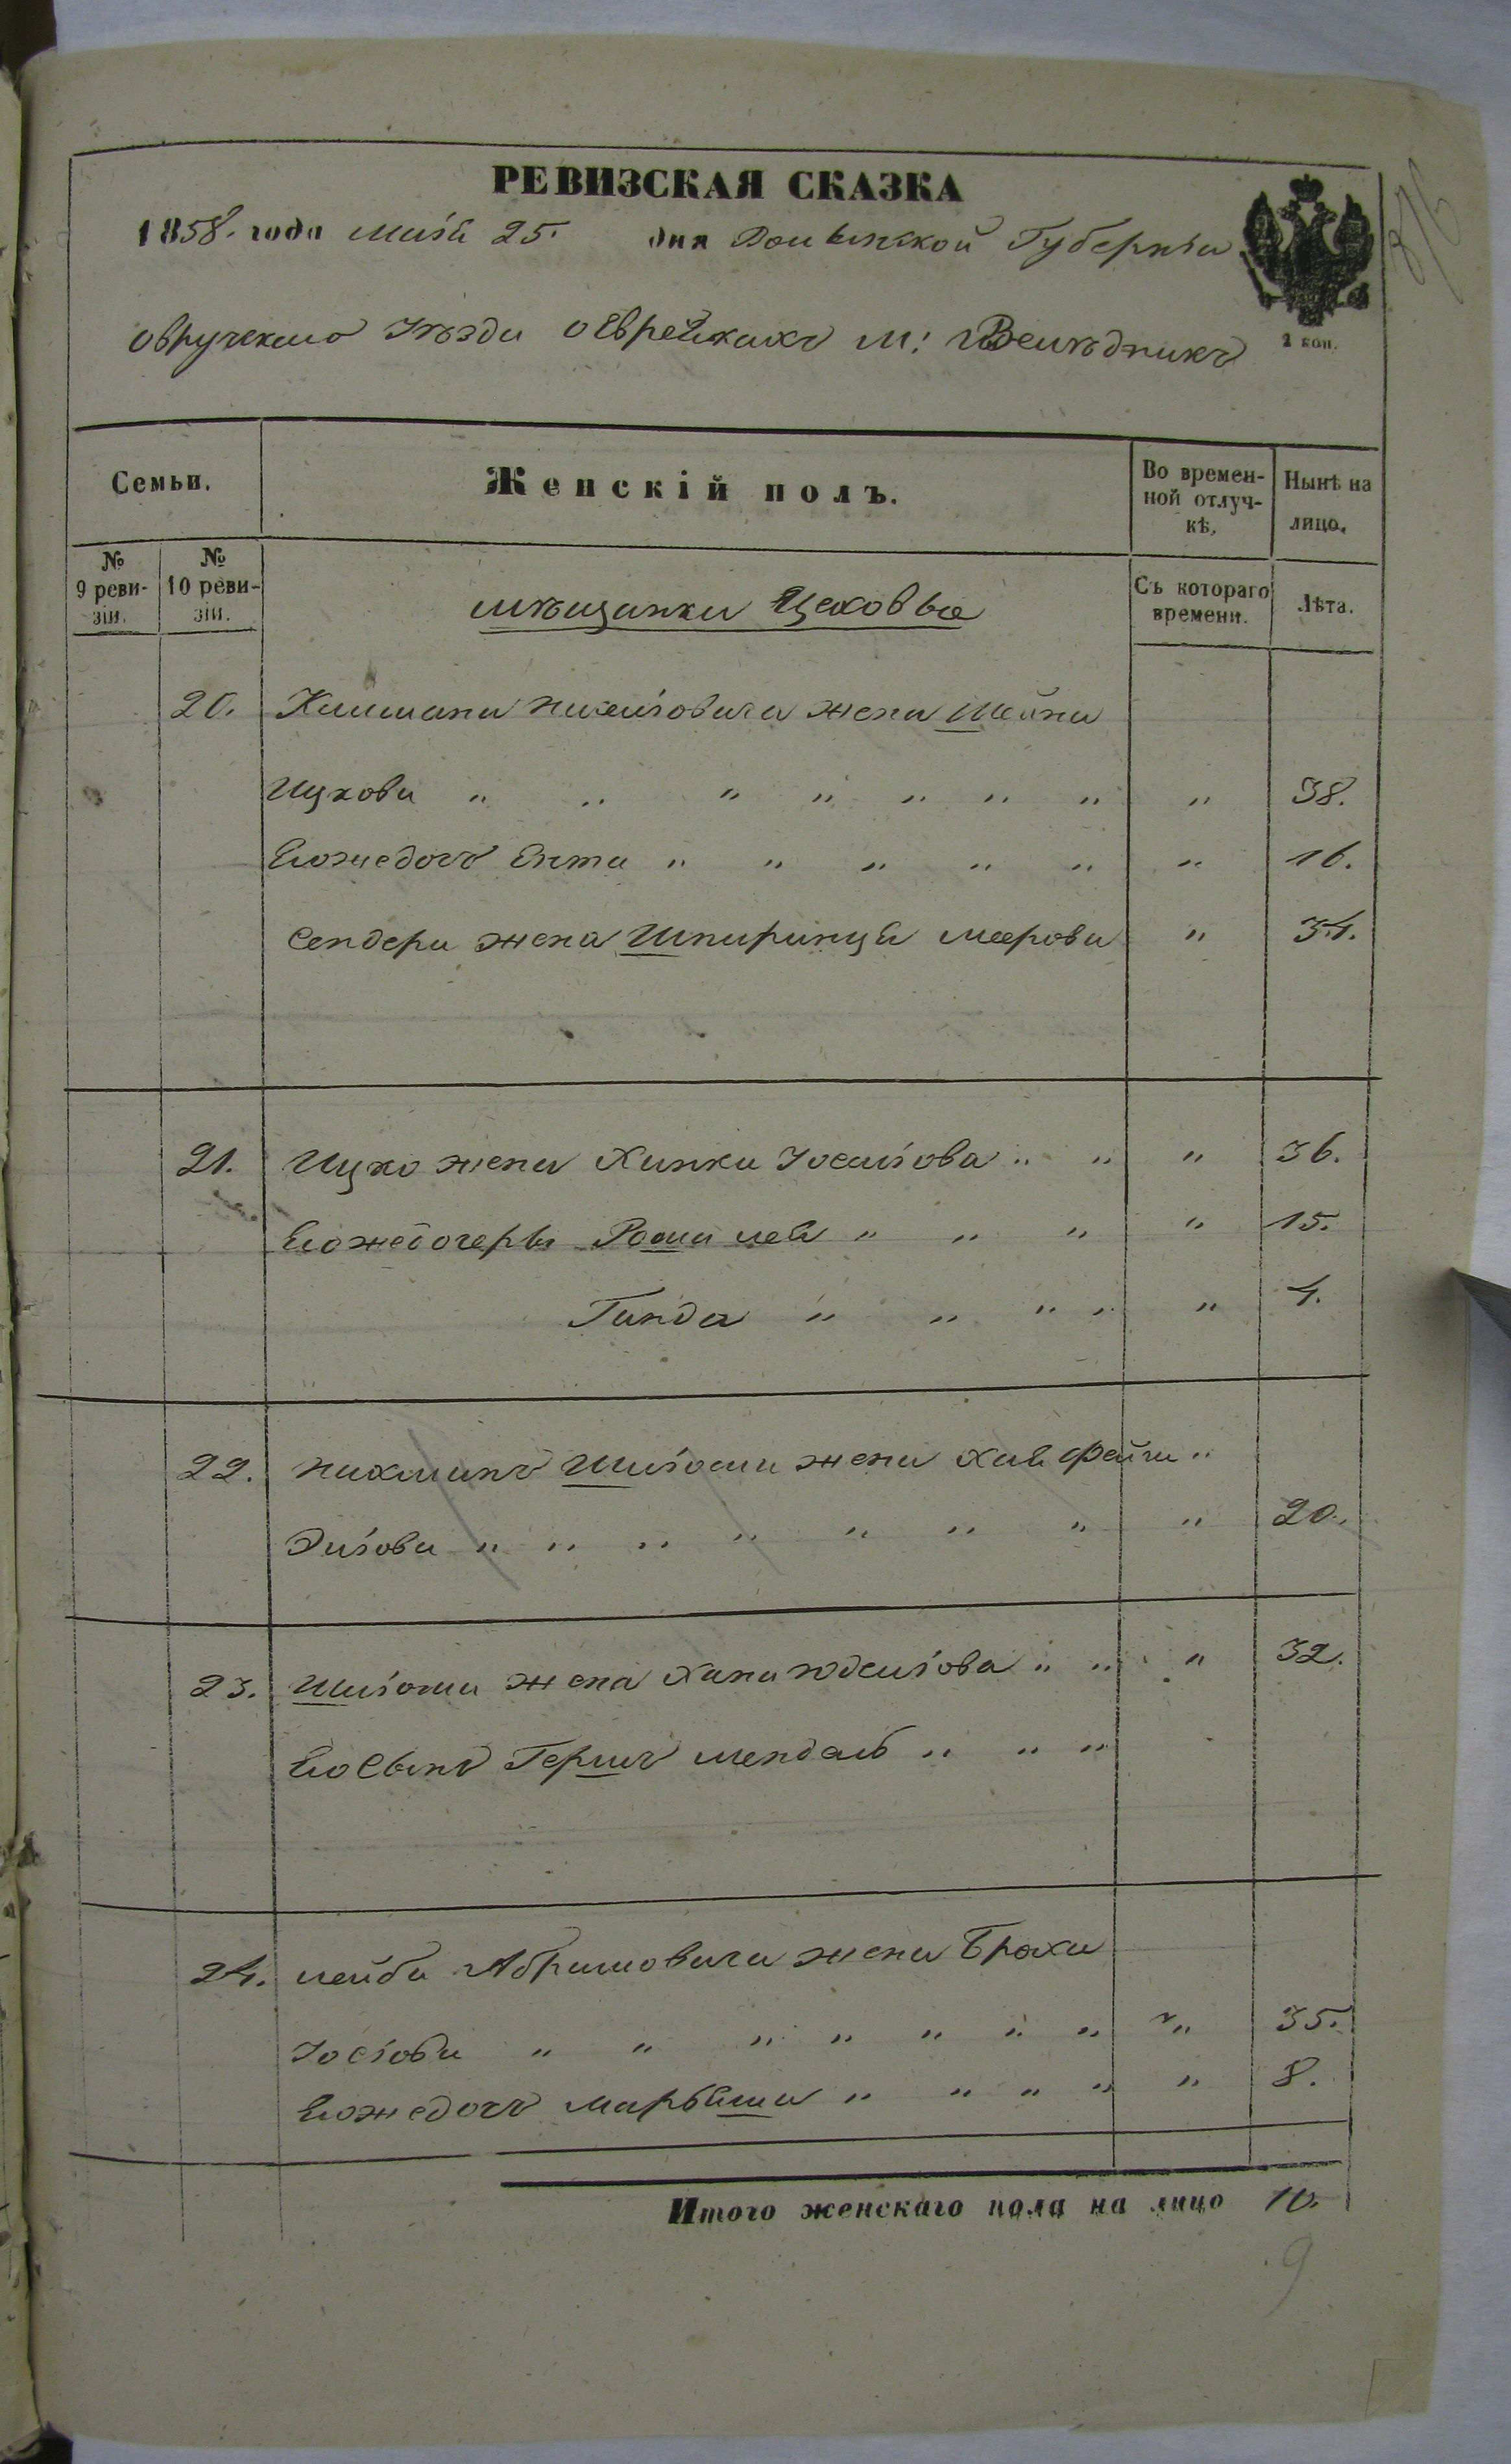 РЕВИЗСКАЯ СКАЗКА
1858. года мая 25. дня Волынской Губерніи
Овручскаго Уѣзда о Еврейкахъ м: Велѣдникъ
2 коп.
Семьи.
Женскій полъ.
Во времен-
ной отлуч-
кѣ.
Нынѣ на
лицо.
№
9 реви-
зіи.
№
10 реви-
зіи.
мѣщанки Цеховые
Съ котораго
времени.
Лѣта.
20. жена Шейна
Ицкова " " " " " " " " 38.
Егожедочь Ента " " " " " " 16.
Сендера жена Шпиринца Меерова " 34.
21. Ицко жена Ханка " " " 36.
Егожедочеры Роша лея " " " " 15.
Гинда " " " " " 4.
22. Нахманъ жена Хая Файга "
" " " " " " " " 20.
23. жена Хана " " " 32.
Его Сынъ Гершъ мендель " " "
24. лейба Абрамовича жена Броха
" " " " " " " " 35.
Егожедочь Марьяша " " " " " 8.
Итого женскаго пола на лицо 10.
9